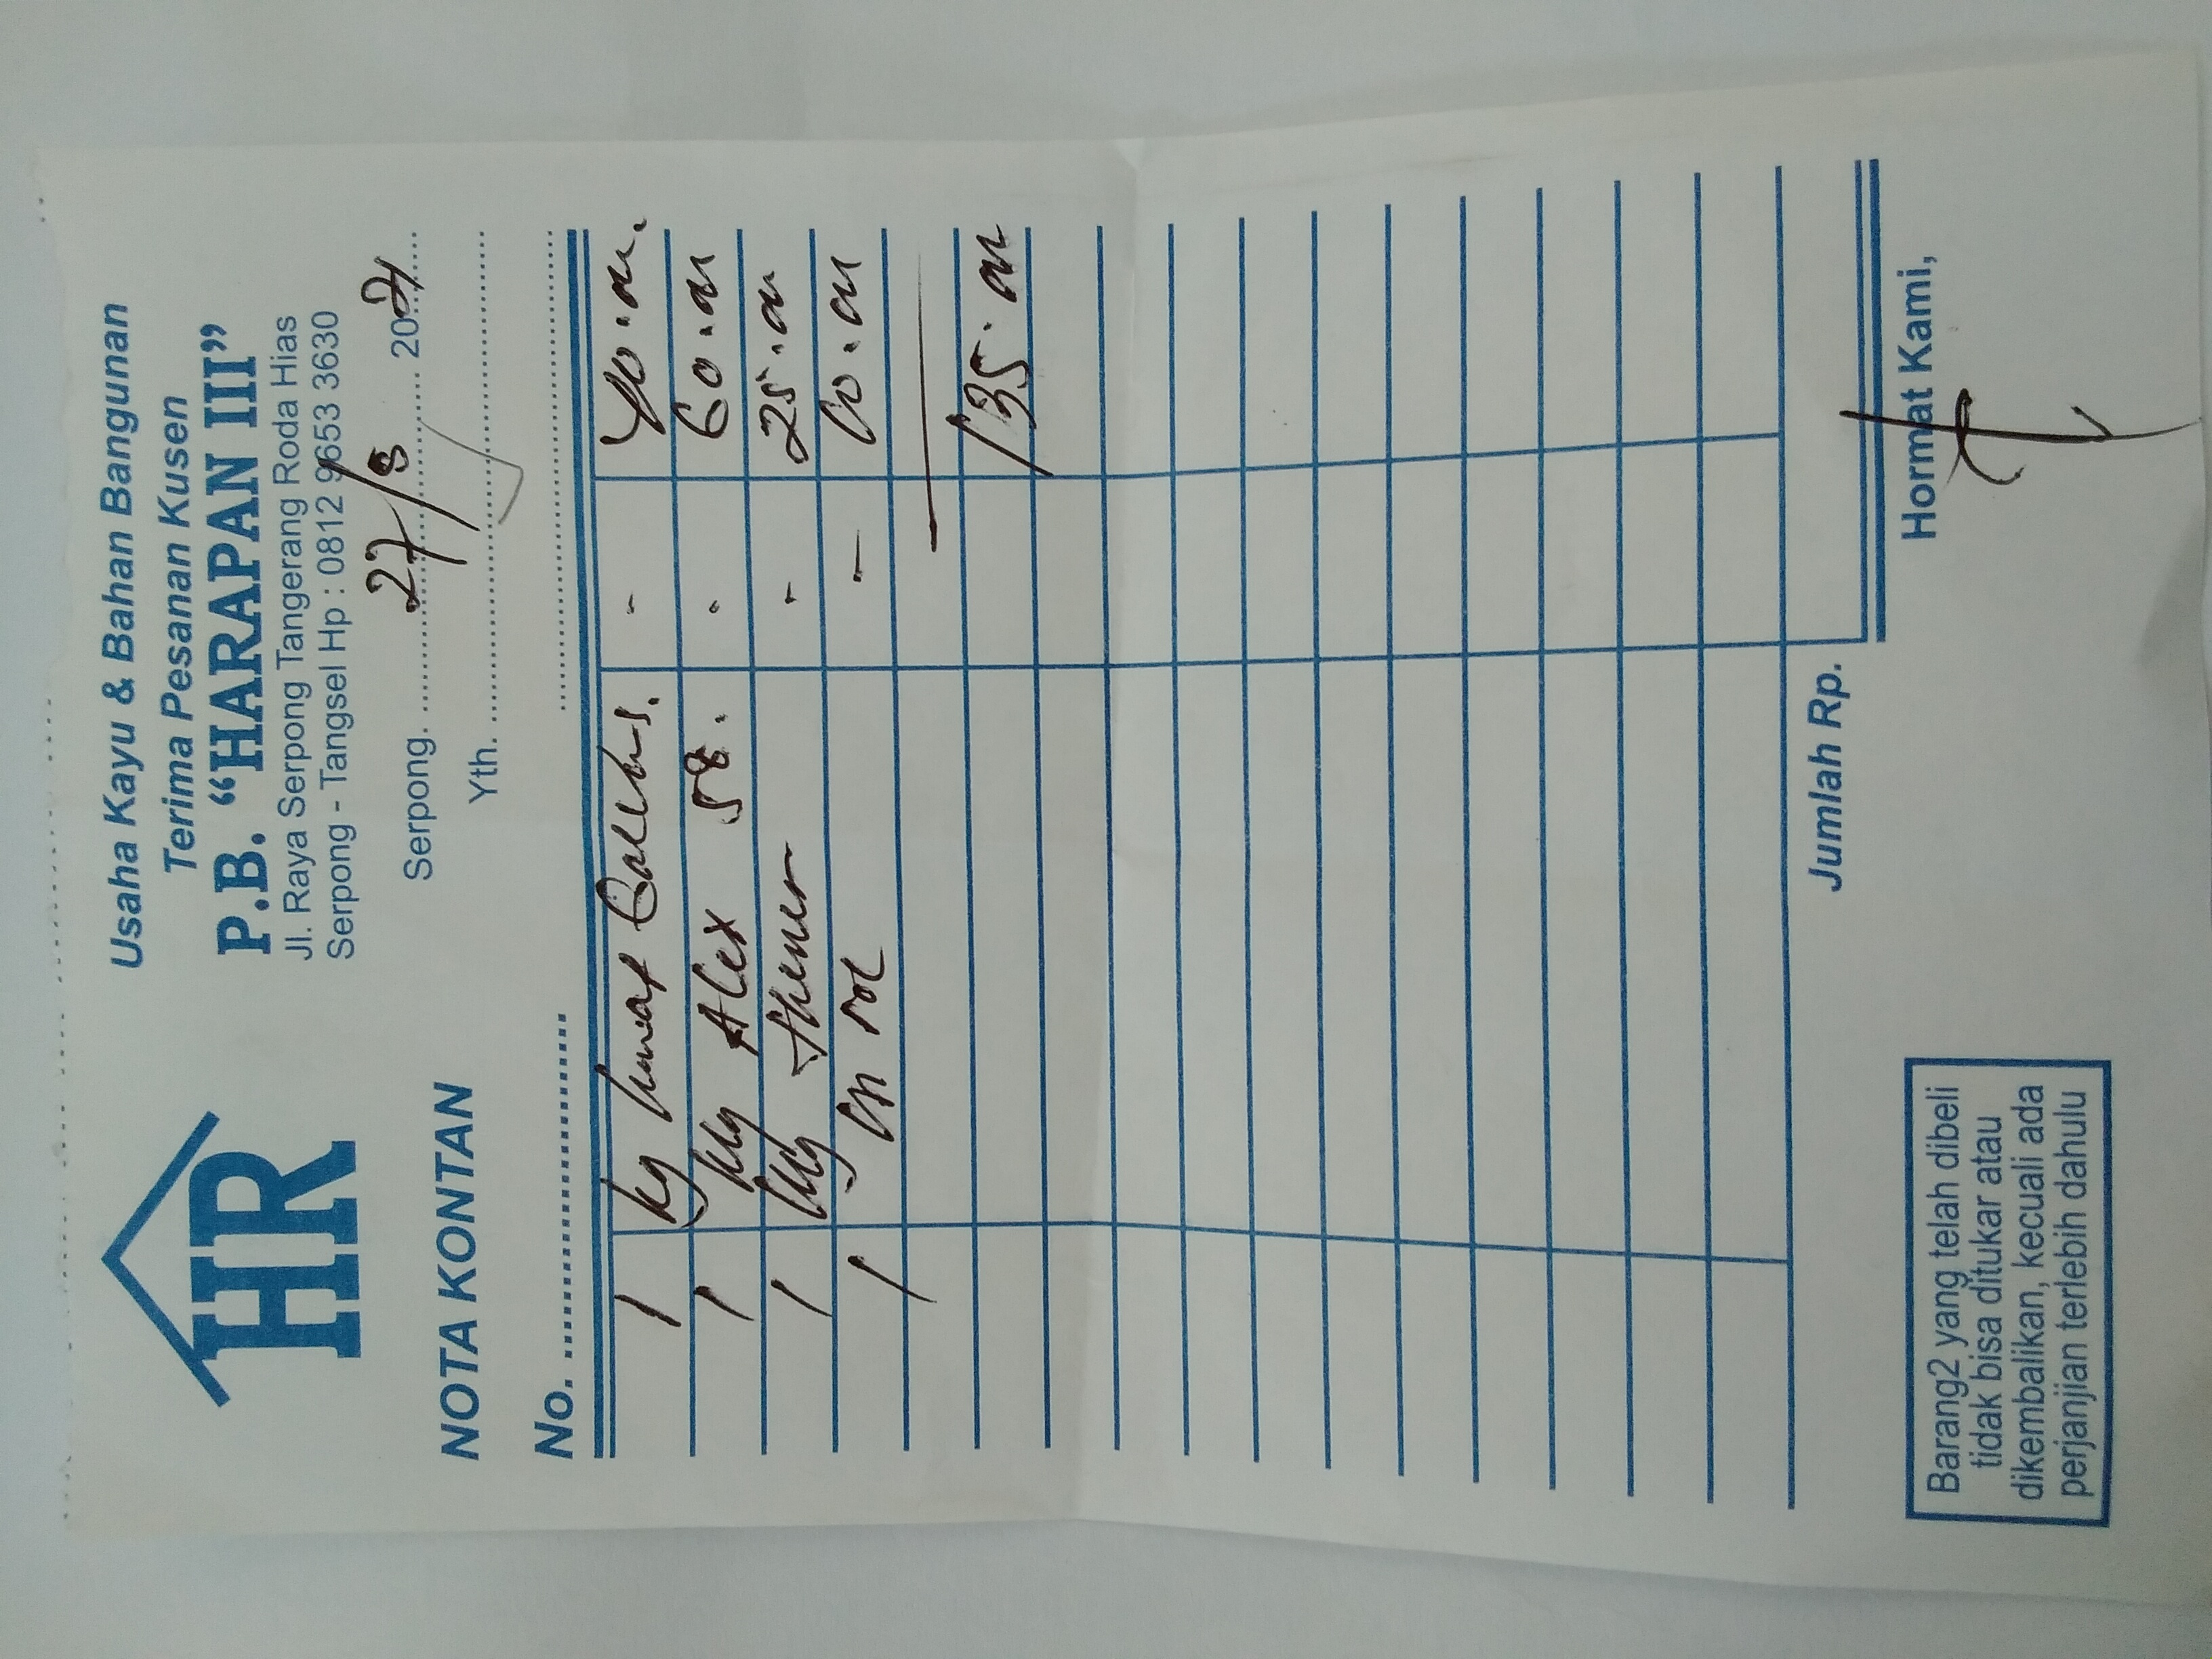 HR
Usaha Kayu & Bahan Bangunan
Terima Pesanan Kusen
P.B. “HARAPAN III”
Jl. Raya Serpong Tangerang Roda Hias
Serpong - Tangsel Hp : 0812 9653 3630
NOTA KONTAN
Serpong. 27/8 20
Yth.
No.
1 kg - 40.00.
1 kg Alex 58. - 60.00
1 kg thener - 25.00
1 - 10.00
135.00
Jumlah Rp.
Barang2 yang telah dibeli
tidak bisa ditukar atau
dikembalikan, kecuali ada
perjanjian terlebih dahulu
Hormat Kami,